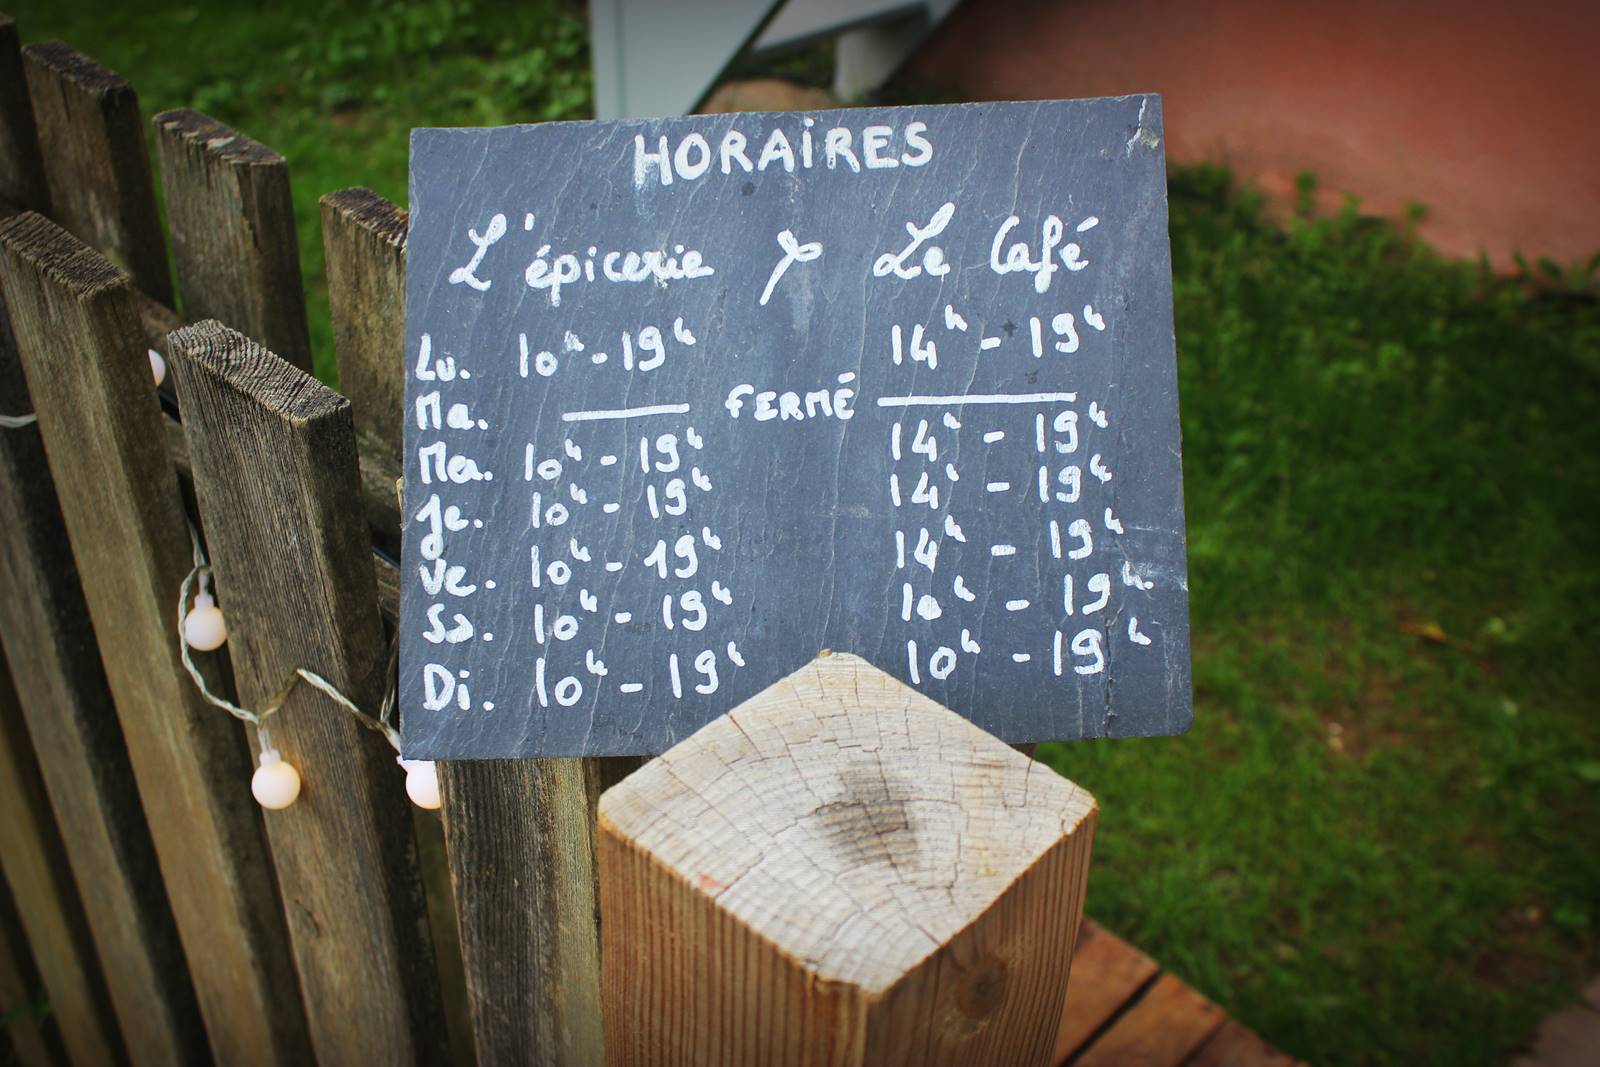 HORAIRES
L'épicerie Le Café
Lu. 10h - 19h 14h - 19h
Ma. FERMÉ
Me. 10h - 19h 14h - 19h
Je. 10h - 19h 14h - 19h
Ve. 10h - 19h 14h - 19h
Sa. 10h - 19h 10h - 19h
Di. 10h - 19h 10h - 19h